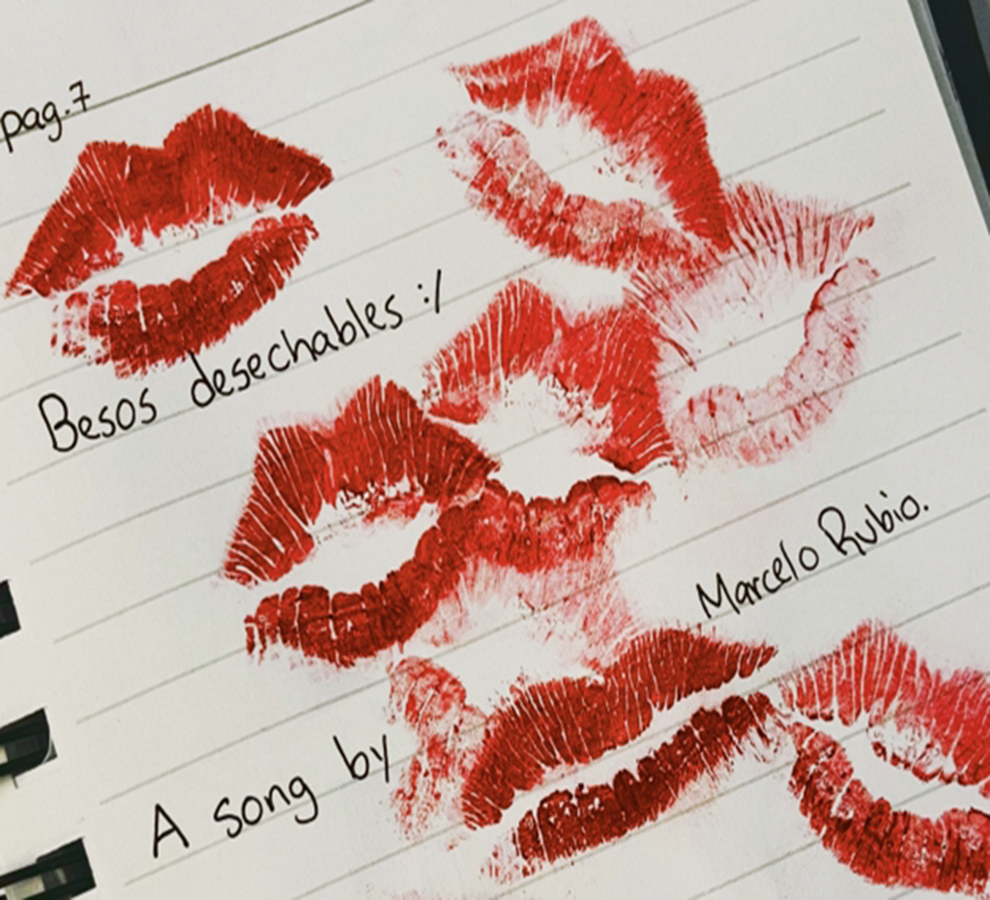 pag.7
Besos desechables :/
Marcelo Rubio.
A song by